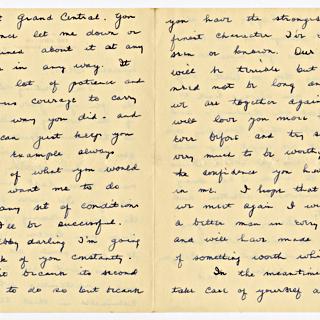 Grand Central. You
once let me down or
about it at any
in any way. It
lot of patience and
courage to carry
way you did - and
can just keep you
example always
of what you would
want me to do
any set of conditions
I'll be successful.
darling I'm going
of you constantly.
it because its second
to do so but because
you have the strongest
finest character I've
seen or known. Our
will be terrible but
need not be long an
we are together again
will love you more
ever before and try
very much to be worthy
the confidence you have
in me. I hope that
we meet again I wi
a better man in every
and will have made
of something worth whi
In the meantime
take care of yourself a